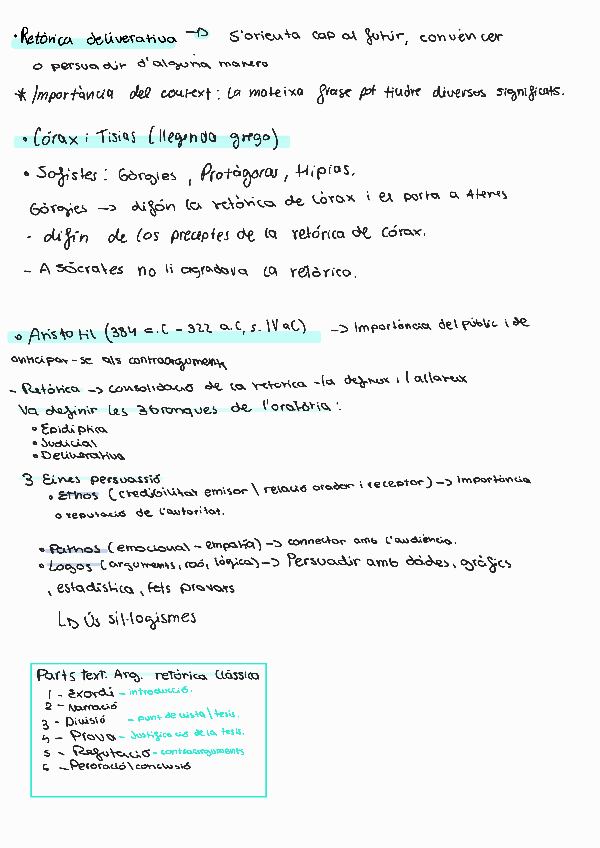 • Retòrica deliverativa → S'orienta cap al futur, convèncer
o persuadir d'alguna manera
* Importància del context: La mateixa frase pot tindre diversos significats.
• Córax i Tisias (llegenda grega)
• Sofistes: Gòrgies, Protàgoras, Hipias.
Gòrgies → difón la retòrica de córax i es porta a Atenes
- difín de los preceptes de la retòrica de córax.
- A Sócrates no li agradava la retòrica.
• Aristotil (384 a.C - 322 a.C, s. IV aC) → Importància del públic i de
anticipar-se als contraarguments
- Retòrica → consolidació de la retorica - la defineix i l'allareix
Va definir les 3 branques de l'oratòria:
• Epidíptica
• Judicial
• Deliverativa
3 Eines persuassió
• Ethos (credibilitat emisor \ relació orador i receptor) → Importància
o reputació de l'autoritat.
• Pathos (emocional - empatía) → connector amb l'audiència.
• Logos (arguments, raó, lògica) → Persuadir amb dades, gràfics
, estadística, fets provats
↳ Ús sil·logismes
Parts text. Arg. retòrica clàssica
1 - Exordi - introducció.
2 - Narració
3 - Divisió - punt de vista \ tesis.
4 - Prova - Justificació de la tesis.
5 - Refutació - contraarguments
6 - Peroració \ conclusió